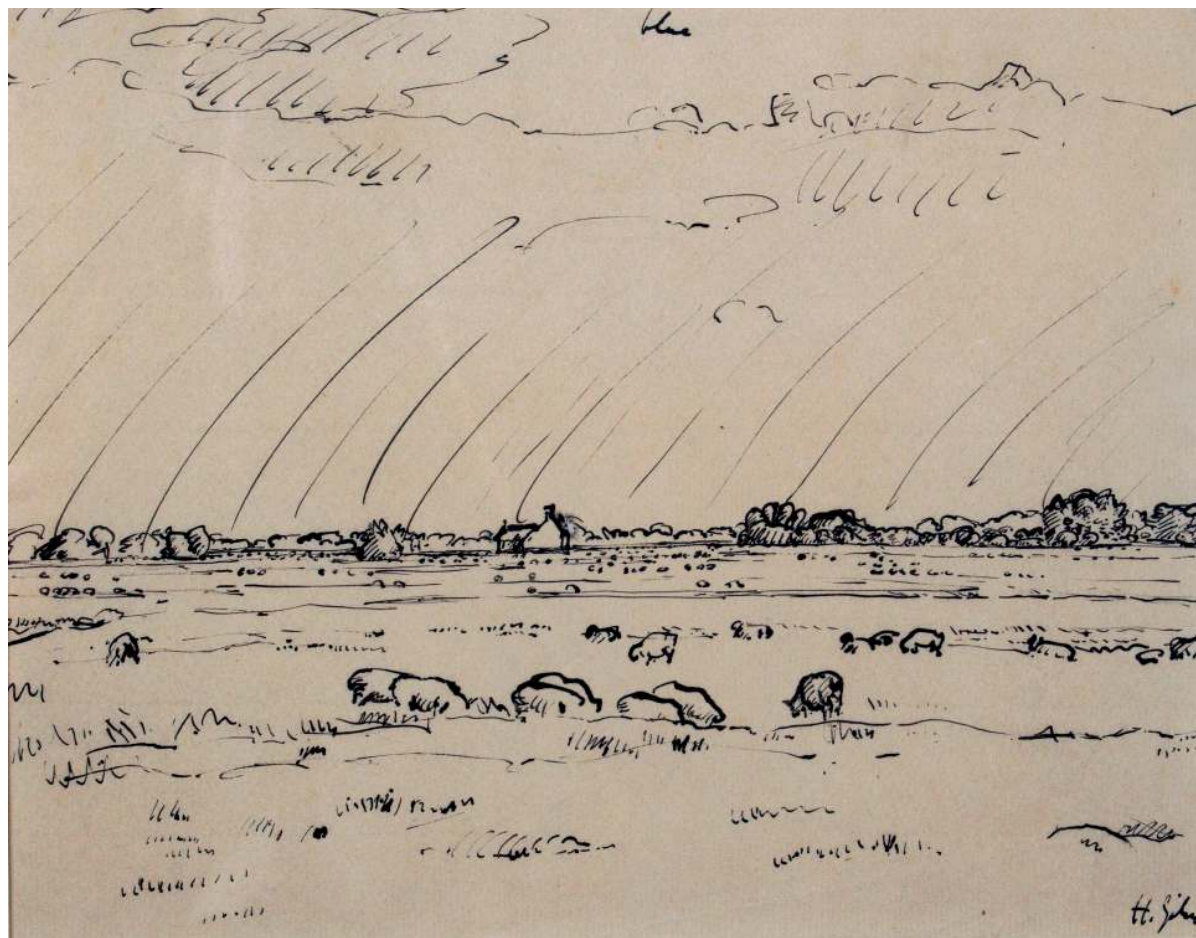 blue
H.